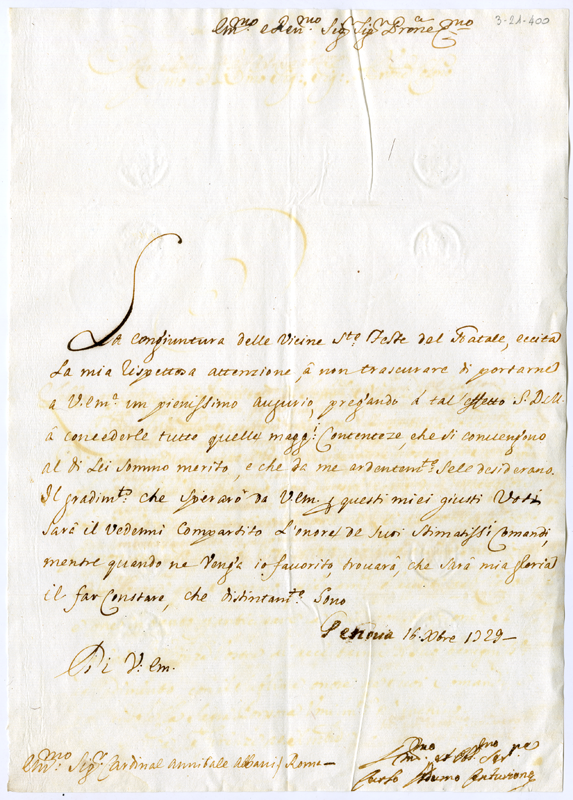 Em.mo e Rev.mo Sig.r Sig.r Prone C.mo
3-21-400
La congiuntura delle Vicine S.te Feste del Natale, eccita
La mia rispettosa attenzione, â non trascurare di portarne
a V. Em.a un pienissimo augurio, pregando â tal'effetto S. D. M.
â concederle tutto quelle magg.i Contenteze, che si convengono
al di Lei sommo merito, e che da me ardentem.te sele desiderano.
Il gradim.to che sperarò da V. Em. p questi miei giusti Voti
sarà il Vedermi Compartito L'onore de suoi stimatiss.i Comandi,
mentre quando ne Venga io favorito, trovarà, che sarà mia gloria
il far Constare, che distintam.te sono
Genova 16 Xbre 1729
Di V. Em.
Em.mo Sig.r Cardinal Annibale Albani / Roma
Carlo Centurione